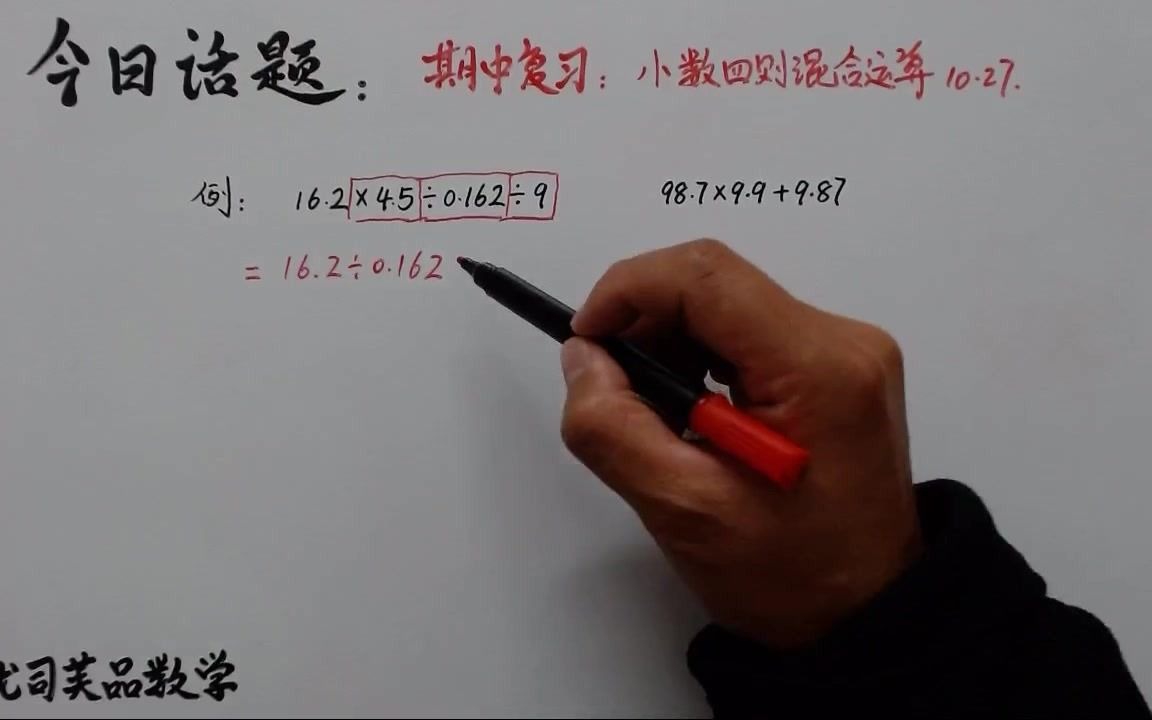 今日话题： 期中复习：小数四则混合运算 10.27.
例： 16.2×4.5÷0.162÷9 98.7×9.9+9.87
= 16.2÷0.162
司芙品数学